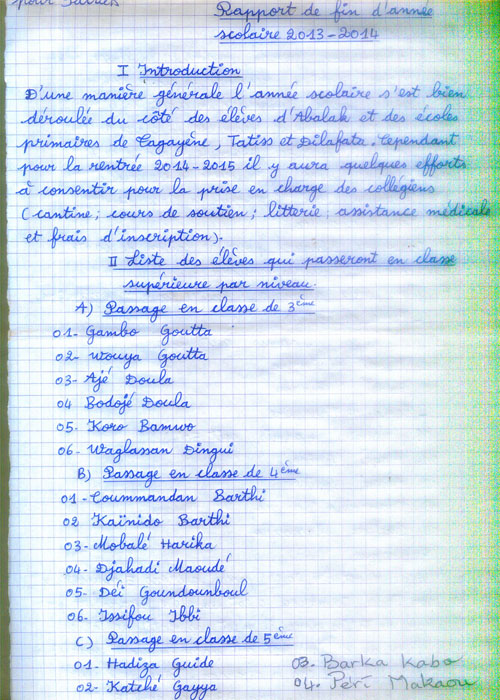 pour
Rapport de fin d'année
scolaire 2013-2014
I Introduction
D'une manière générale l'année scolaire s'est bien
déroulée du côté des élèves d'Abalak et des écoles
primaires de Tagayène, Tatiss et Dilafata. Cependant
pour la rentrée 2014-2015 il y aura quelques efforts
à consentir pour la prise en charge des collégiens
(cantine; cours de soutien; litterie; assistance médicale
et frais d'inscription).
II Liste des élèves qui passeront en classe
supérieure par niveau.
A) Passage en classe de 3ème
01- Gambo Goutta
02- Wouya Goutta
03- Ajé Doula
04 Bodojé Doula
05- Koro Bamwo
06- Waglassan Dingui
B) Passage en classe de 4ème
01- Coummandan Barthi
02 Kaïnido Barthi
03- Mobalé Harika
04- Djahadi Maoudé
05- Déi Goundounboul
06. Issifou Ibbi
C) Passage en classe de 5ème
01. Hadiza Guide
02- Katché Gayya
03. Barka Kabo
04. Peri Makaou